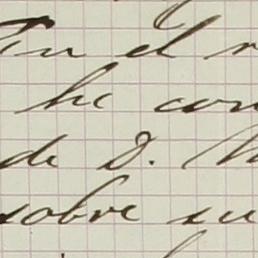 En el
he con
de D. M
sobre su